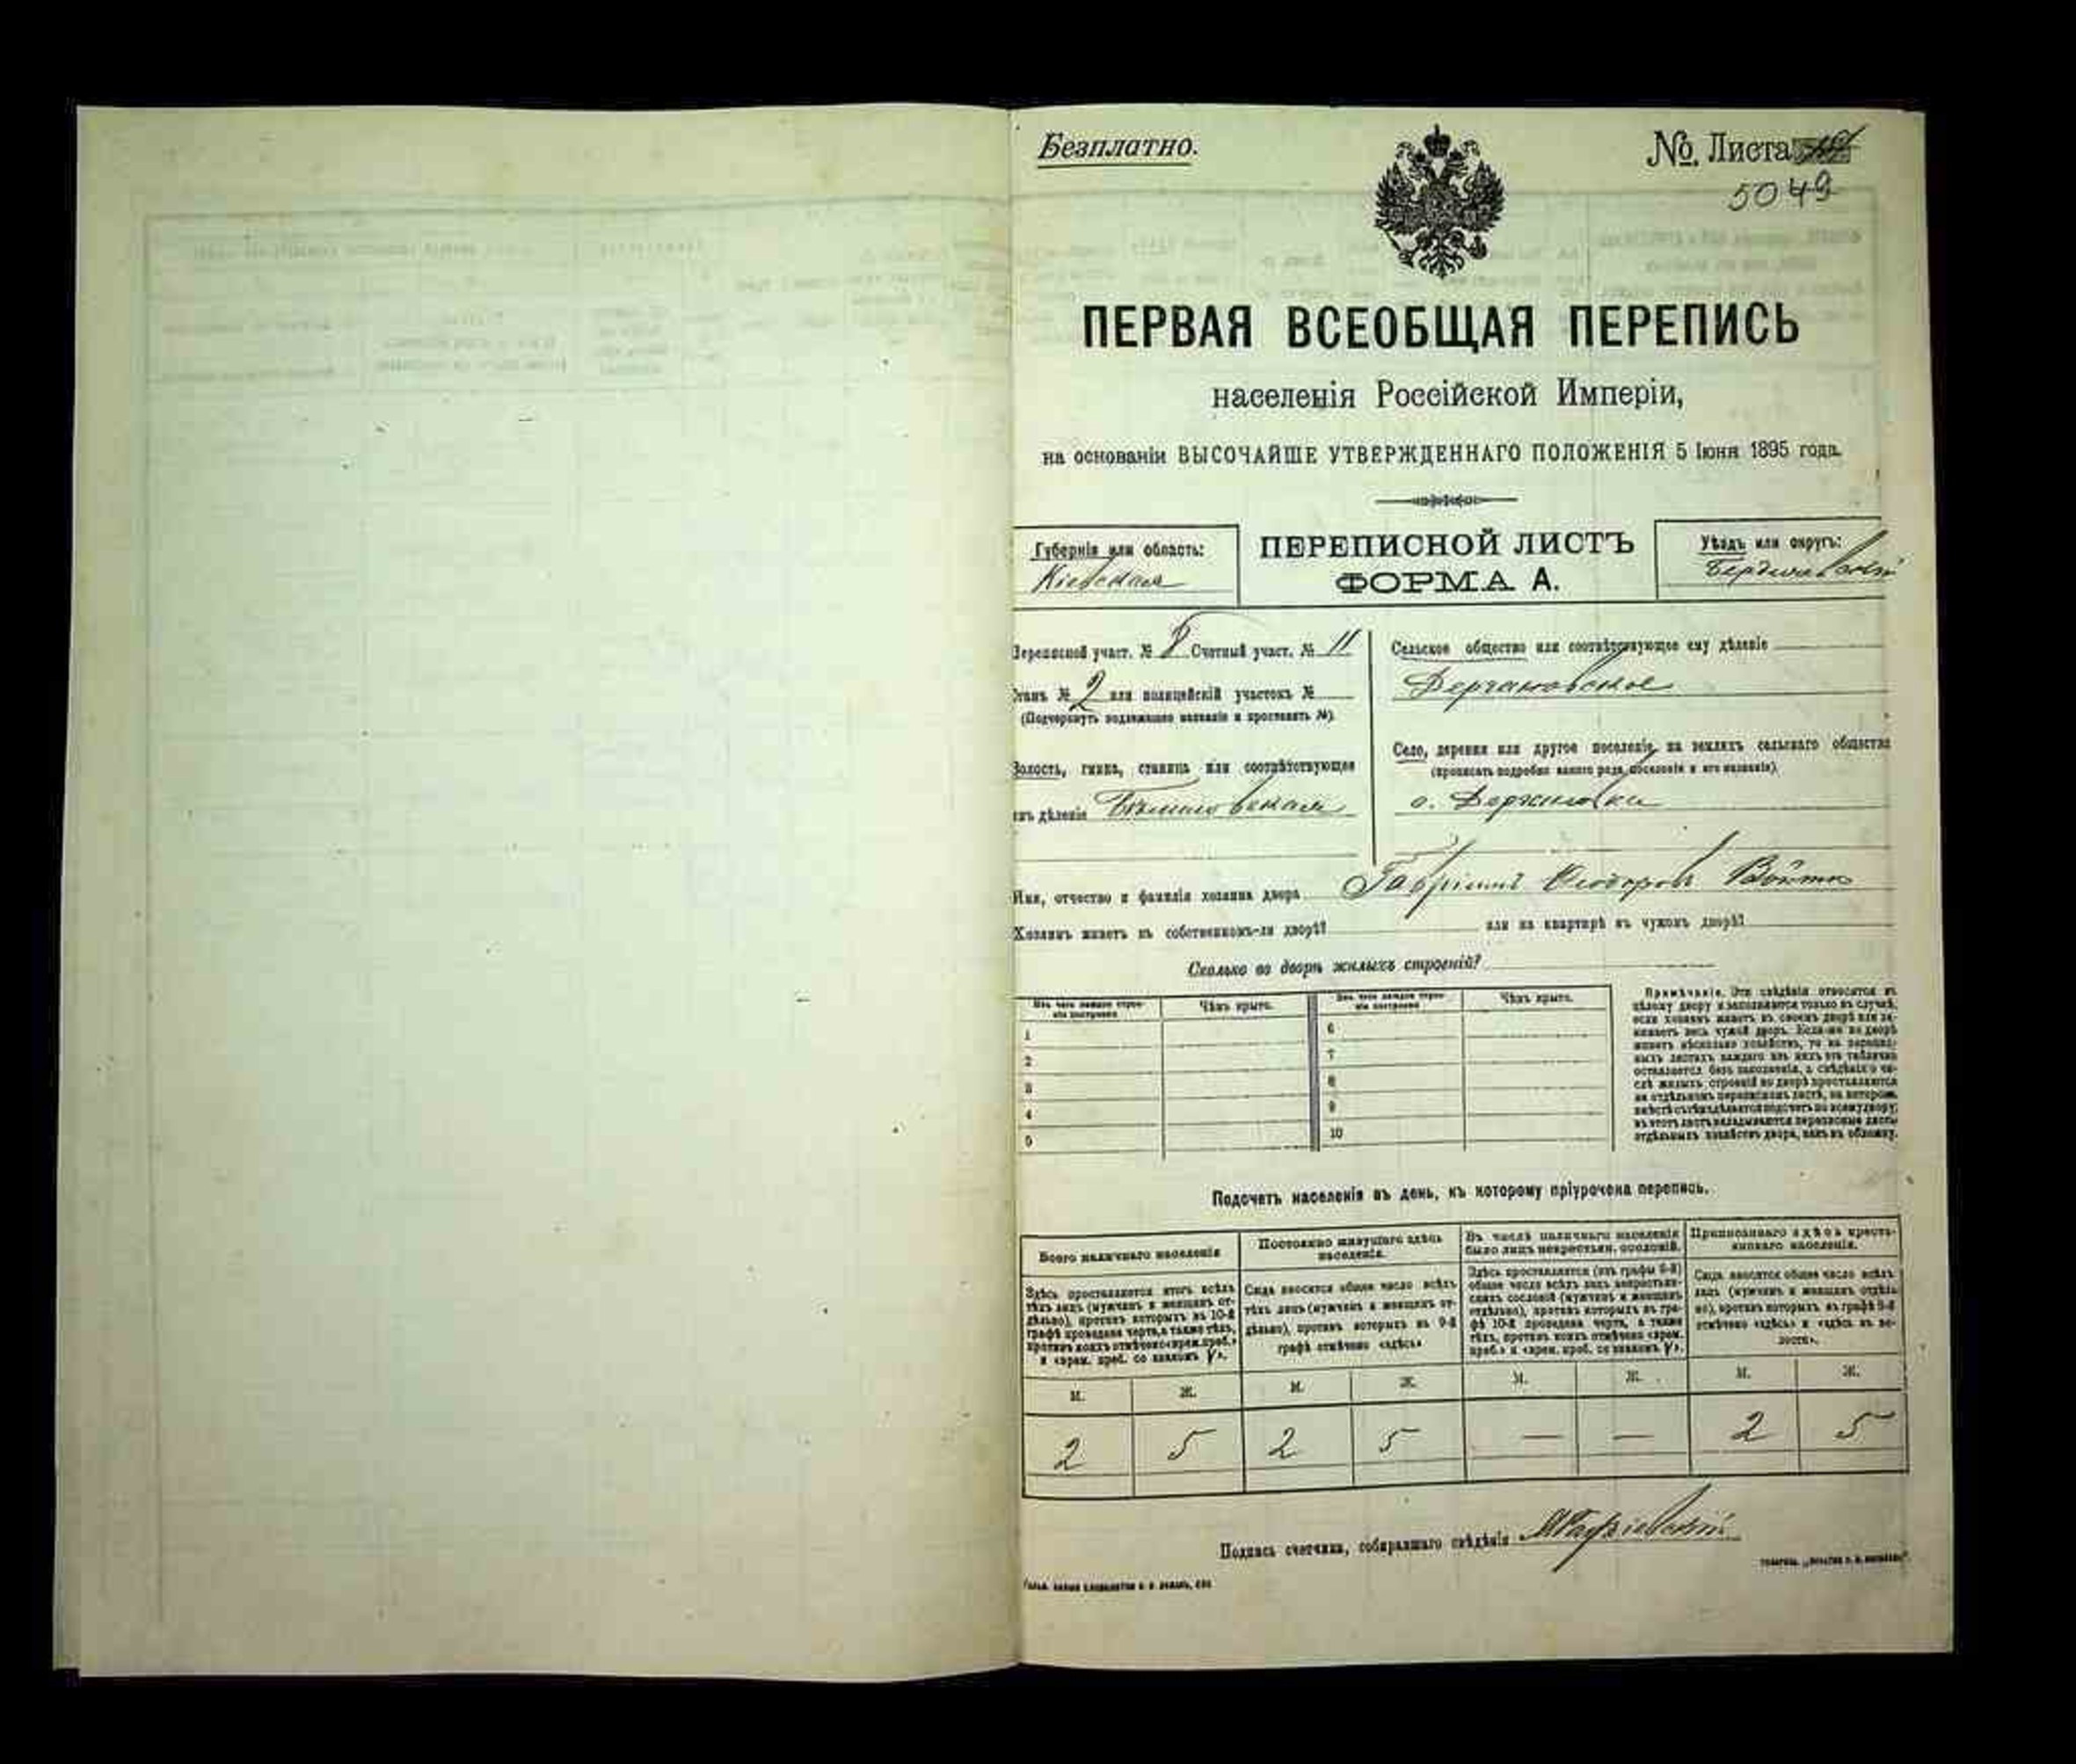 Безплатно.
№ Листа
5049
ПЕРВАЯ ВСЕОБЩАЯ ПЕРЕПИСЬ
населенія Россійской Имперіи,
на основаніи ВЫСОЧАЙШЕ УТВЕРЖДЕННАГО ПОЛОЖЕНІЯ 5 Іюня 1895 года.
Губернія или область:
Кіевская
ПЕРЕПИСНОЙ ЛИСТЪ
ФОРМА А.
Уѣздъ или округъ:
Бердичевскій
Переписной участ. № 8 Счетный участ. № 11
Станъ № 2 или полицейскій участокъ №
(Подчеркнуть подлежащее названіе и проставить №).
Волость, гмина, станица или соотвѣтствующее
имъ дѣленіе
Сельское общество или соотвѣтствующее ему дѣленіе
Село, деревня или другое поселеніе на земляхъ сельскаго общества
(прописать подробно какого рода поселеніе и его названіе).
с.
Имя, отчество и фамилія хозяина двора Гавріилъ Феодоровъ Войтко
Хозяинъ живетъ въ собственномъ-ли дворѣ? или на квартирѣ въ чужомъ дворѣ?
Сколько во дворѣ жилыхъ строеній?
Изъ чего каждое строеніе построено Чѣмъ крыто. Изъ чего каждое строеніе построено Чѣмъ крыто.
1 6
2 7
3 8
4 9
5 10
Примѣчаніе. Эти свѣдѣнія относятся къ
цѣлому двору и заполняются только въ случаѣ,
если хозяинъ живетъ въ своемъ дворѣ или за-
нимаетъ весь чужой дворъ. Если-же во дворѣ
живетъ нѣсколько хозяйствъ, то на перепис-
ныхъ листахъ каждаго изъ нихъ эта табличка
оставляется безъ заполненія, а свѣдѣнія о чи-
слѣ жилыхъ строеній во дворѣ проставляются
на отдѣльномъ переписномъ листѣ, на которомъ
вмѣстѣ съ тѣмъ дѣлается подсчетъ по всему двору;
въ этотъ листъ вкладываются переписные листы
отдѣльныхъ хозяйствъ двора, какъ въ обложку.
Подсчетъ населенія въ день, къ которому пріурочена перепись.
Всего наличнаго населенія
Здѣсь проставляется итогъ всѣхъ
тѣхъ лицъ (мужчинъ и женщинъ от-
дѣльно), противъ которыхъ въ 10-й
графѣ проведена черта, а также тѣхъ,
противъ коихъ отмѣчено «врем. преб.»
и «врем. преб. со знакомъ V».
Постоянно живущаго здѣсь
населенія.
Сюда вносится общее число всѣхъ
тѣхъ лицъ (мужчинъ и женщинъ от-
дѣльно), противъ которыхъ въ 9-й
графѣ отмѣчено «здѣсь»
Въ числѣ наличнаго населенія
было лицъ некрестьян. сословій.
Здѣсь проставляется (изъ графы 6-й)
общее число всѣхъ лицъ некрестьян-
скихъ сословій (мужчинъ и женщинъ
отдѣльно), противъ которыхъ въ гра-
фѣ 10-й проведена черта, а также
тѣхъ, противъ коихъ отмѣчено «врем.
преб.» и «врем. преб. со знакомъ V».
Приписаннаго здѣсь кресть-
янскаго населенія.
Сюда вносится общее число всѣхъ
лицъ (мужчинъ и женщинъ отдѣль-
но), противъ которыхъ въ графѣ 8-й
отмѣчено «здѣсь» и «здѣсь въ во-
лости».
М. Ж. М. Ж. М. Ж. М. Ж.
2 5 2 5 — — 2 5
Подпись счетчика, собиравшаго свѣдѣнія